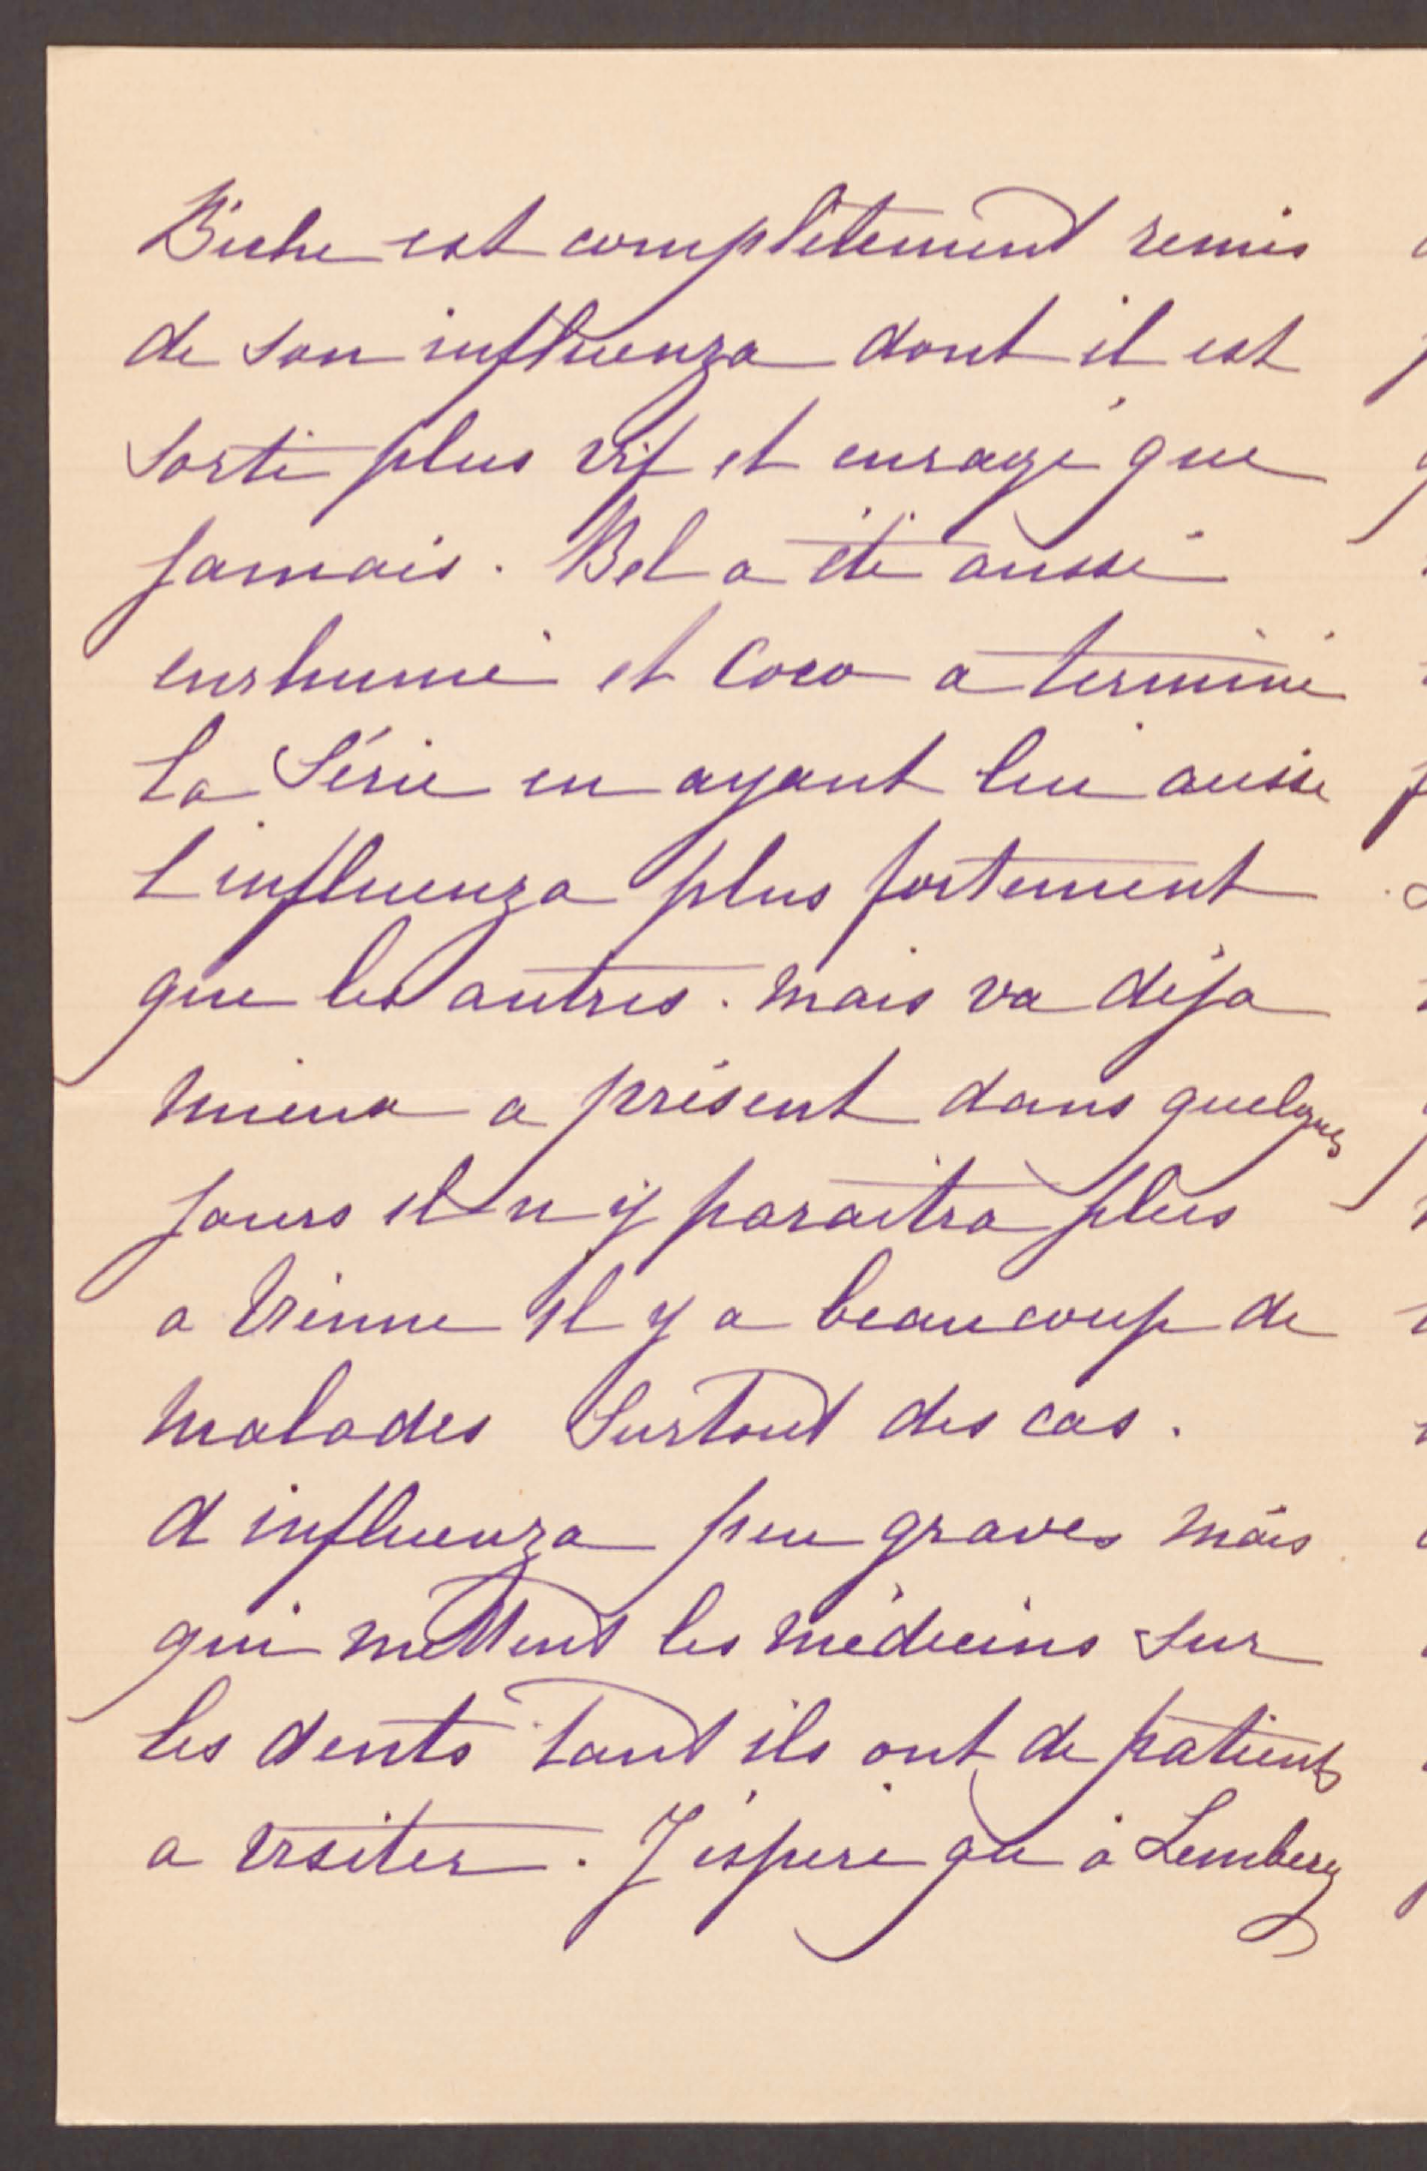 Biche est complètement remis
de son influenza dont il est
sorti plus vif et enragé que
jamais. Bel a été aussi
enrhumé et Coco a terminé
la Série en ayant lui aussi
l influenza plus fortement
que les autres. mais va déja
mieux a présent dans quelques
jours il n y paraitra plus
a Vienne il y a beaucoup de
malades Surtout des cas.
d influenza peu graves mais
qui mettent les médecins sur
les dents tant ils ont de patients
a visiter. J éspère qu à Lemberg